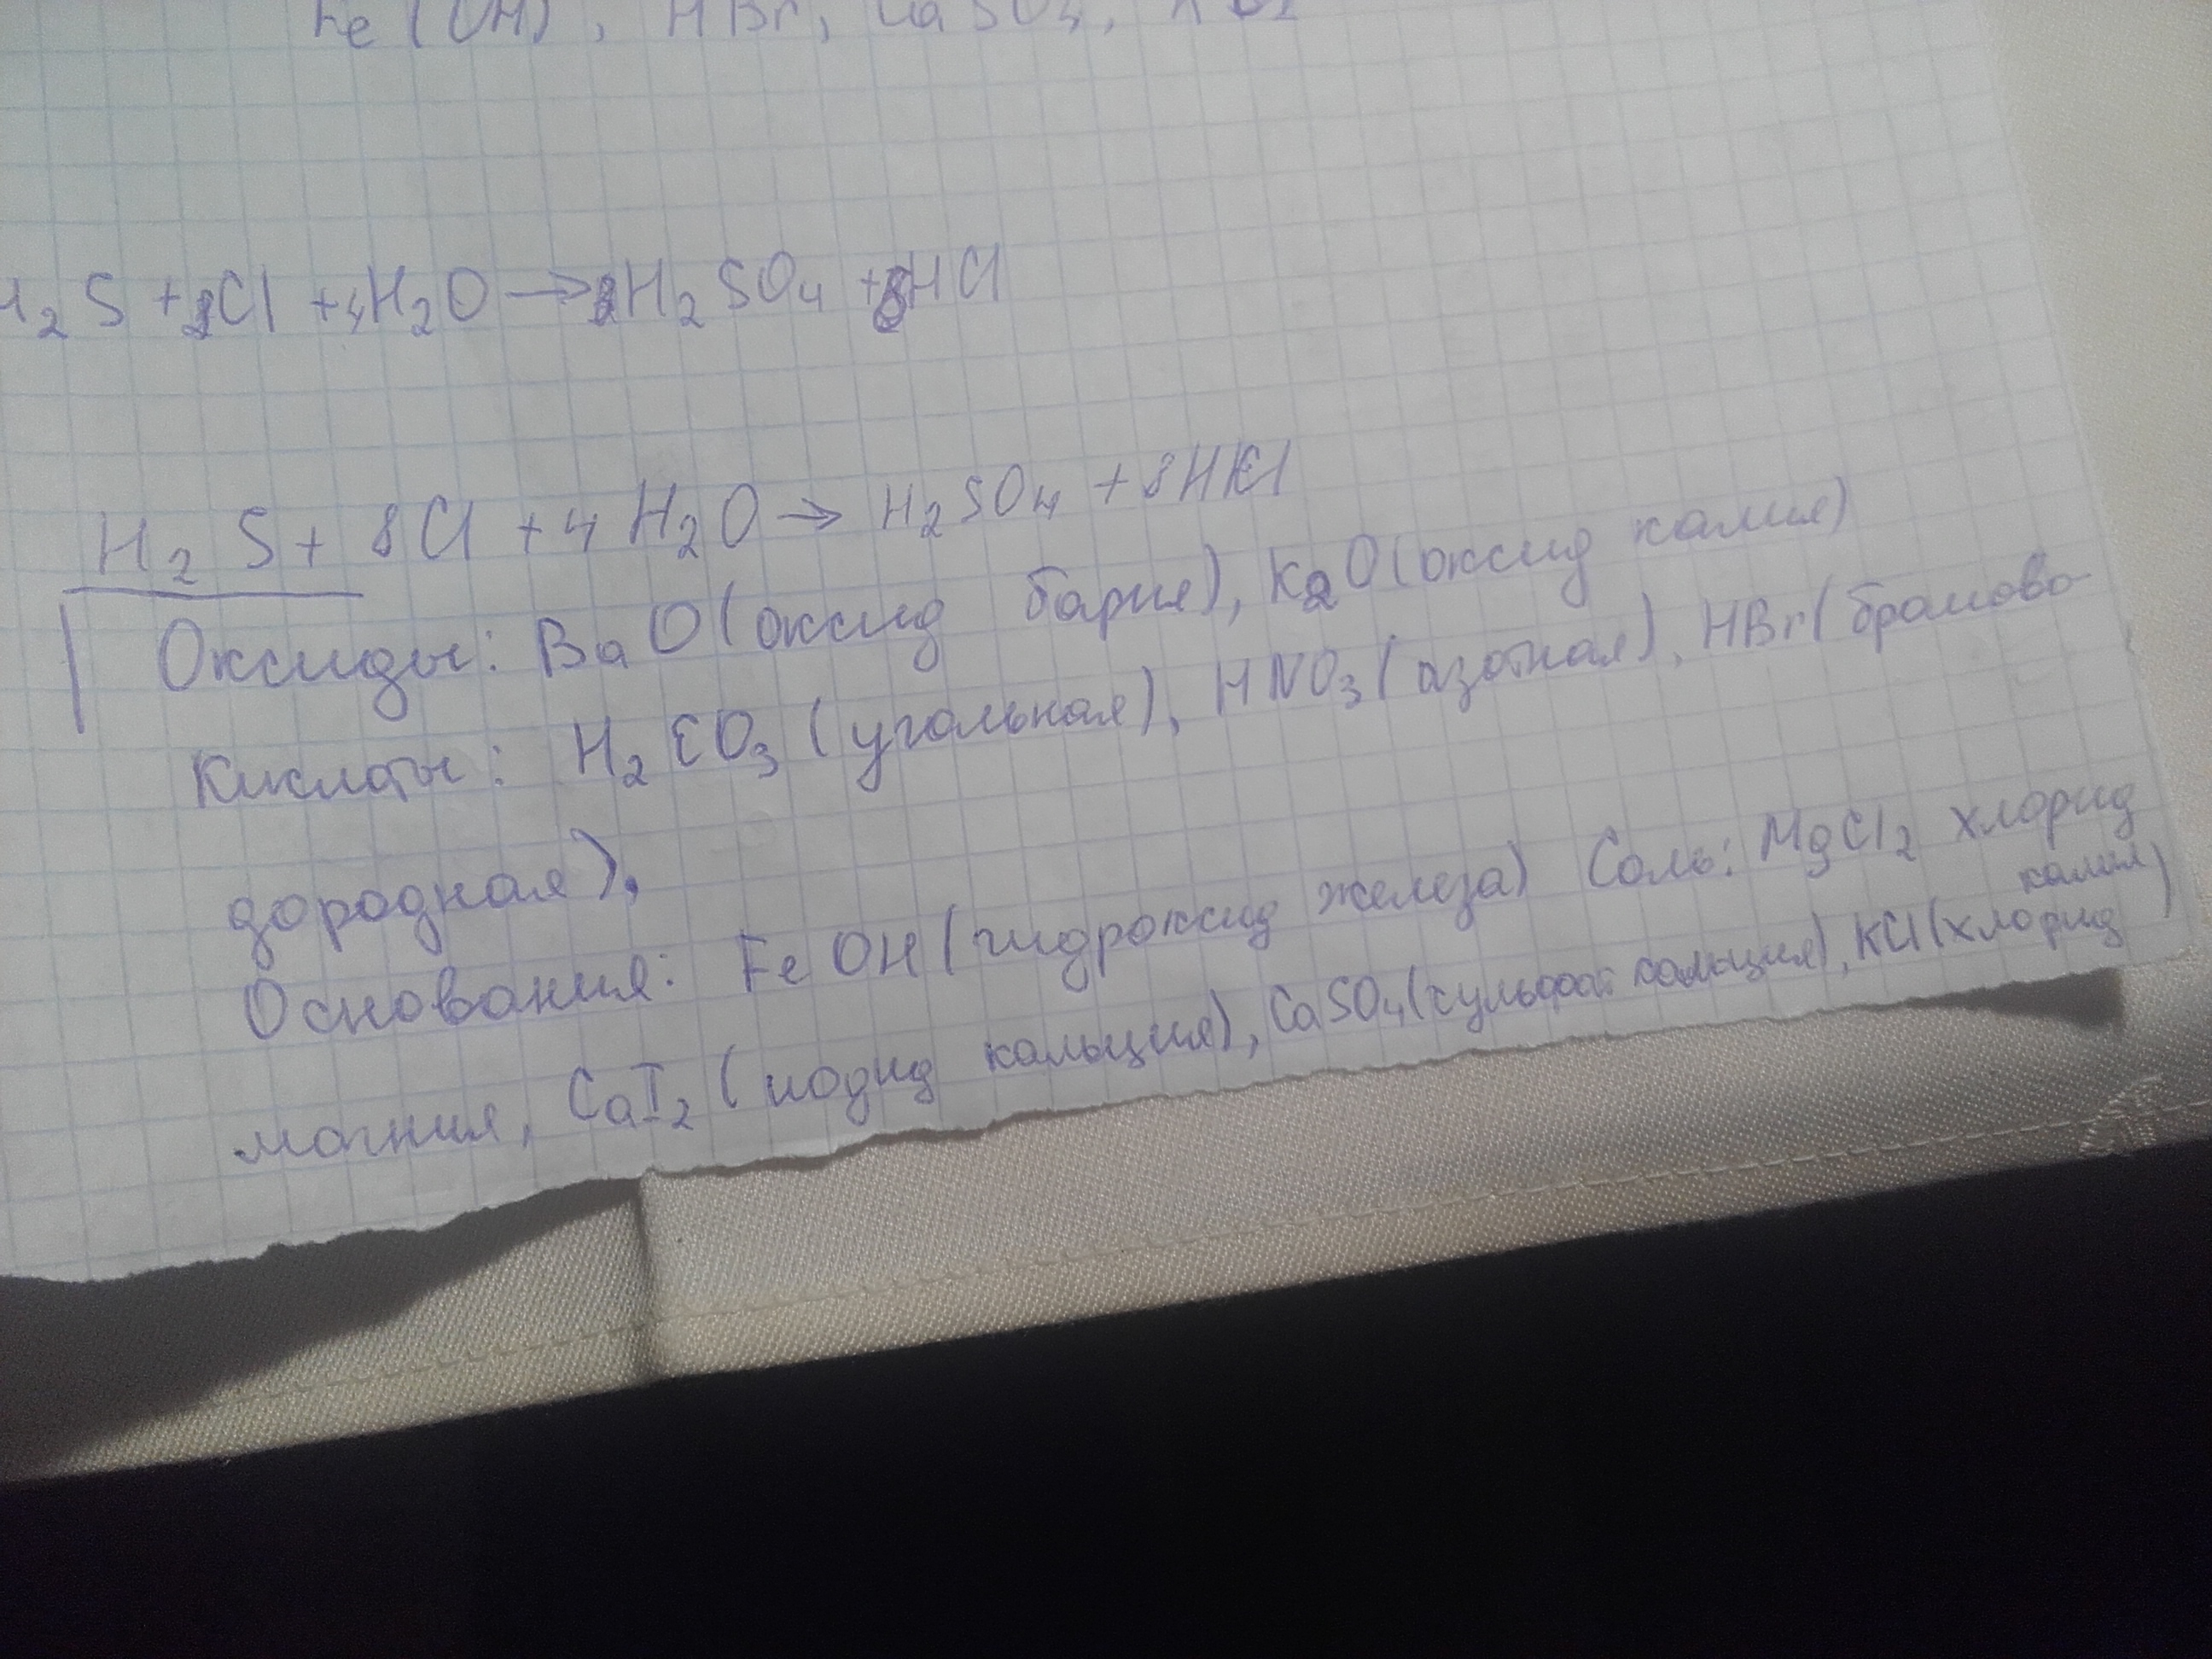 Fe(OH), HBr, CaSO4,
H2S + 8Cl + 4H2O → H2SO4 + 8HCl
H2S + 8Cl + 4H2O → H2SO4 + 8HCl
Оксиды: BaO (оксид бария), K2O (оксид калия)
Кислоты: H2CO3 (угольная), HNO3 (азотная), HBr (бромово-
дородная),
Основания: FeOH (гидроксид железа) Соль: MgCl2 хлорид
магния, CaI2 (иодид кальция), CaSO4 (сульфат кальция), KCl (хлорид
калия)